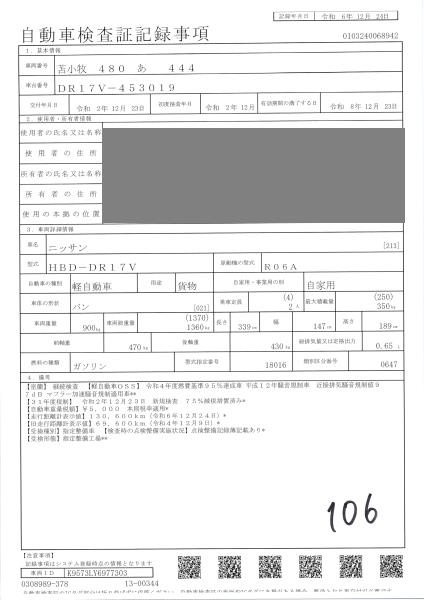 記録年月日 令和 6年12月 24日
自動車検査証記録事項
0103240068942
1. 基本情報
車両番号 苫小牧 480 あ 444
車台番号 DR17V-453019
交付年月日 令和 2年12月 23日 初度検査年月 令和 2年12月 有効期間の満了する日 令和 8年12月 23日
2. 使用者・所有者情報
使用者の氏名又は名称
使用者の住所
所有者の氏名又は名称
所有者の住所
使用の本拠の位置
3. 車両詳細情報
車名 ニッサン [211]
型式 HBD-DR17V 原動機の型式 R06A
自動車の種別 軽自動車 用途 貨物 自家用・事業用の別 自家用
車体の形状 バン [021] 乗車定員 (4) 2人 最大積載量 (250) 350kg
車両重量 900kg 車両総重量 (1370) 1360kg 長さ 339cm 幅 147cm 高さ 189cm
前軸重 470kg 後軸重 430kg 総排気量又は定格出力 0.65L
燃料の種類 ガソリン 型式指定番号 18016 類別区分番号 0647
4. 備考
【室蘭】 継続検査 【軽自動車OSS】 令和4年度燃費基準95%達成車 平成12年騒音規制車 近接排気騒音規制値9
7dB マフラー加速騒音規制適用車**
【31年度税制】 令和2年12月23日 新規検査 75%減税措置済み*
【自動車重量税額】¥5,000 本則税率適用*
【走行距離計表示値】130,600km(令和6年12月24日)*
【旧走行距離計表示値】69,600km(令和4年12月9日)*
【受検種別】指定整備車 【検査時の点検整備実施状況】点検整備記録簿記載あり*
【受検形態】指定整備工場**
106
【注意事項】
記載事項はシステム登録時点の情報となります
車両ID K9573LY6977303
0308989-378 13-00344